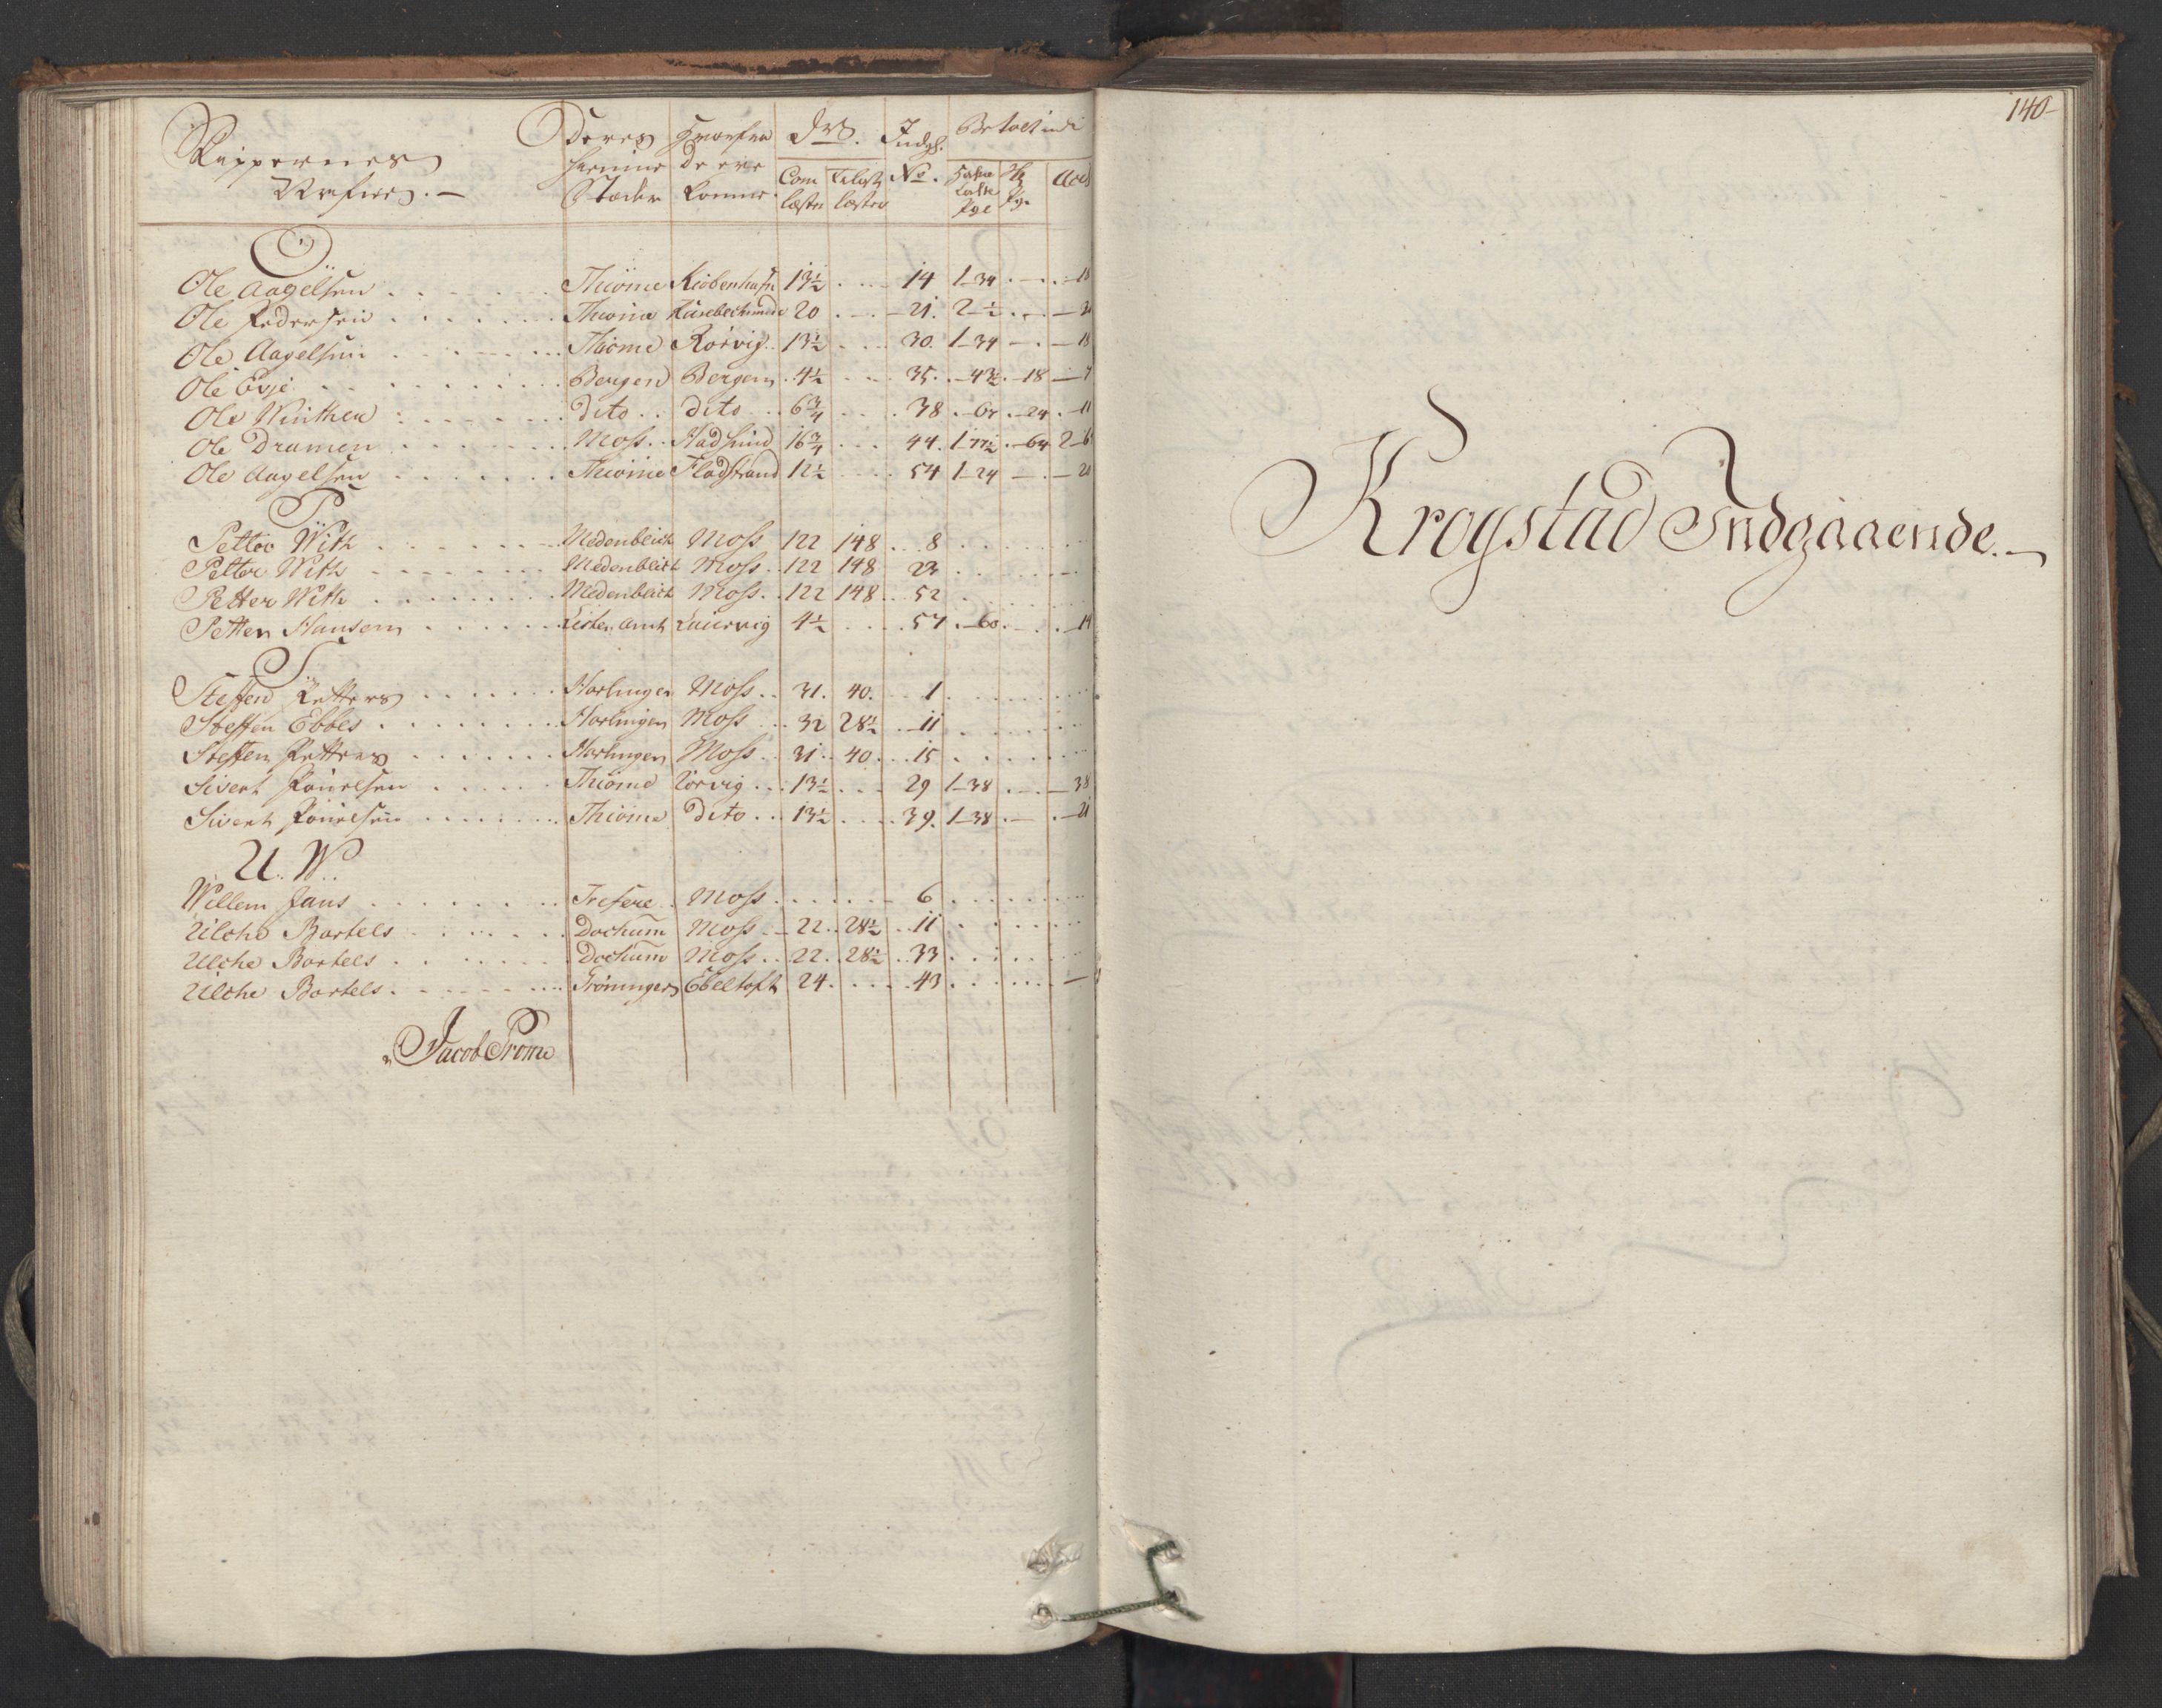 Skippernes Nafne. — Deres hiemme Stæder Hvorfra de ere komne Dr. Indg. Betalt udi
Com læster Trælast læster No.
O
Ole Aagelsen Thiöme Kiöbenhafn 13½ 14 1-34 18
Ole Pedersen Thiöme 20 21. 2-½
Ole Aagelsen Thiöme Rörvig 13½ 30. 1-34 18
Ole Evje Bergen Bergen 4½ 35. 43½ 18 7
Ole Winther dito dito 6¾ 38 24 11
Ole Dramen Moss Hadsund 16¾ 44. 1-77½ 64 2-6
Ole Aagelsen Thiöme Fladstrand 12½ 54 1-24
P
Petter With Medenblich Moss 122 148 8
Petter With Medenblich Moss 122 148 23
Petter With Medenblich Moss 122 148 52
Petter Hansen Lister Amt Laurvig 4½ 57 60 14
S
Steffen Petters Harlingen Moss 31. 40. 1
Steffen Ebbes Harlingen Moss 32 28½ 11
Steffen Petters Harlingen Moss 31 40 15
Sivert Pövelsen Thiöme Rörvig 13½ 29 1-38 38
Sivert Pövelsen Thiöme dito 13½ 39. 1-38 21
U. W.
Willem Jans Moss 6
Ulche Bartels Dochum Moss 22 28½ 11
Ulche Bartels Dochum Moss 22 28½ 33
Ulche Bartels Gröningen Ebeltoft 24 43
Jacob Prome
140
Krogstad Indgaaende.